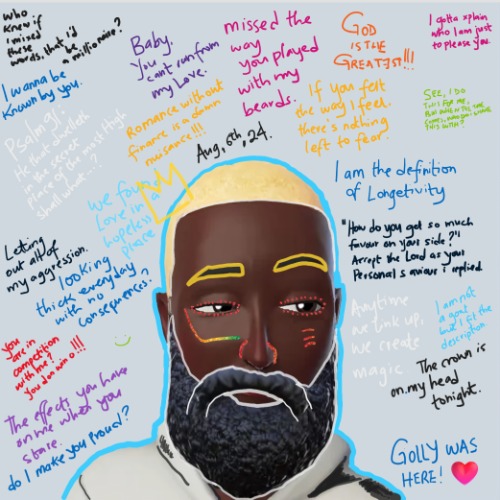 who
knew if
i missed
these
words, that'd
be
a millionaire?
I wanna be
known by you.
Psalm 91.
He that dwelleth
in the secret
place of the most High
shall what...?
Baby.
You
can't run from
my Love.
missed the
way
you played
with my
beards.
GOD
IS THE
GREATEST!!!
I gotta xplain
who I am just
to please you.
SEE, I DO
THIS FOR ME,
Romance without
finance is a damn
nuisance!!!
If you felt
the way I feel.
there's nothing
left to fear.
Aug, 6th, 24.
we found
Love in a
hopeless
place
I am the definition
of Longetivity
"How do you get so much
favour on your side?"
Accept the Lord as your
Personal saviour i replied.
Letting
out all of
my aggression.
looking
thick everyday
with no
consequences.
you
are in
competition
with me?
you don win o!!!
The effect you have
on me when you
stare.
do I make you Proud?
Anytime
we link up,
we create
magic
I am not
a goat,
but I fit the
description
The crown is
on my head
tonight.
GOLLY WAS
HERE!